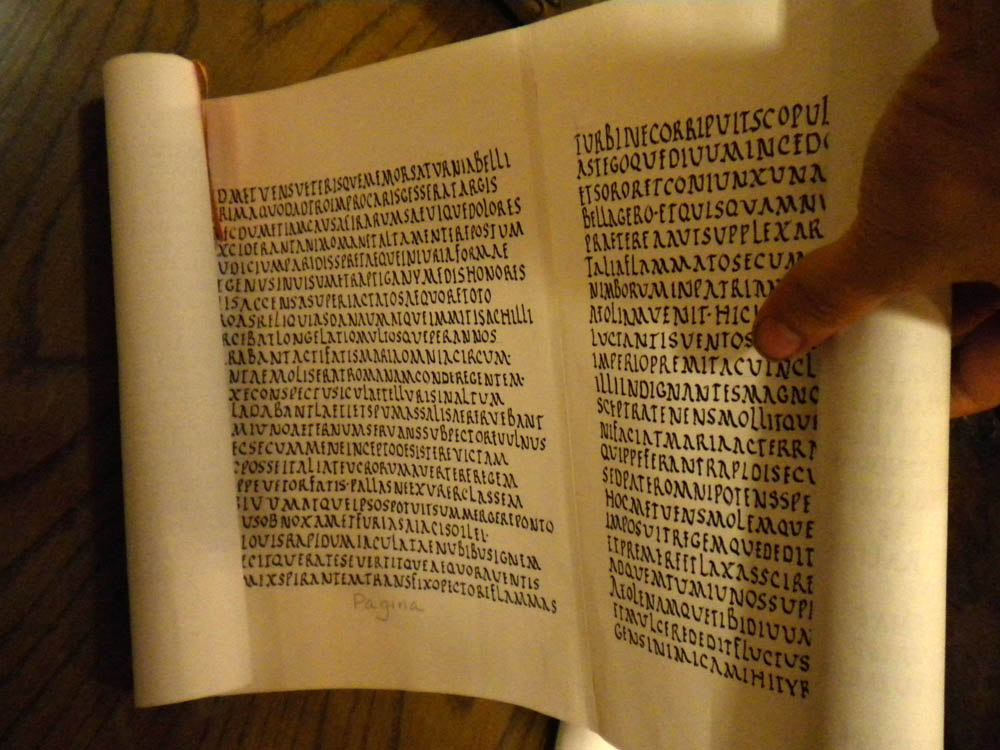 D METUENSUETERISQUEMEMORSATURNIABELLI
RIMAQUODADTROIMPROCARISGESSERATARGIS
ECDUMETIAMCAUSAEIRARUMSAEUIQUEDOLORES
XCIDERANTANIMOMANETALTAMENTEREPOSTUM
UDICIUMPARIDISSPRETAEQUEINIURIAFORMAE
TGENUSINUISUMETRAPTIGANYMEDISHONORES
ISACCENSASUPERIACTATOSAEQUORETOTO
ROASRELIQUIASDANAUMATQUEIMMITISACHILLI
RCEBATLONGELATIOMULTOSQUEPERANNOS
RRABANTACTIFATISMARIAOMNIACIRCUM·
NTAEMOLISERATROMANAMCONDEREGENTEM·
XECONSPECTUSICULAETELLURISINALTUM
LADABANTLAETIETSPUMASSALISAERERUEBANT
MIUNOAETERNUMSERUANSSUBPECTOREUULNUS
ECSECUMMENEINCEPTODESISTEREUICTAM
CPOSSEITALIATEUCRORUMAUERTEREREGEM
PPEUETORFATIS·PALLASNEEXURERECLASSEM
IUUMATQUEIPSOSPOTUITSUMMERGEREPONTO
USOBNOXAMETFURIASAIACISOILEI·
IOUISRAPIDUMIACULATAENUBIBUSIGNEM
ECITQUERATESEUERTITQUEAEQUORAUENTIS
MEXSPIRANTEMTRANSFIXOPECTOREFLAMMAS
Pagina
TURBINECORRIPUITSCOPUL
ASTEGOQUEDIUUMINCEDO
ETSORORETCONIUNXUNA
BELLAGERO·ETQUISQUAMNI
PRAETEREAAUTSUPPLEXAR
TALIAFLAMMATOSECUM
NIMBORUMINPATRIAM
AEOLIAMUENIT·HIC
LUCTANTISUENTOS
IMPERIOPREMITACUINCL
ILLIINDIGNANTESMAGNO
SCEPTRATENENSMOLLITQUE
NIFACIATMARIAACTERRA
QUIPPEFERANTRAPIDISECU
SEDPATEROMNIPOTENSSPE
HOCMETUENSMOLEMQUE
IMPOSUITREGEMQUEDEDIT
ETPREMEREETLAXASSCIRE
ADQUEMTUMIUNOSSUPI
AEOLENAMQUETIBIDIUUN
ETMULCEREDEDITFLUCTUS
GENSINIMICAMIHITYR